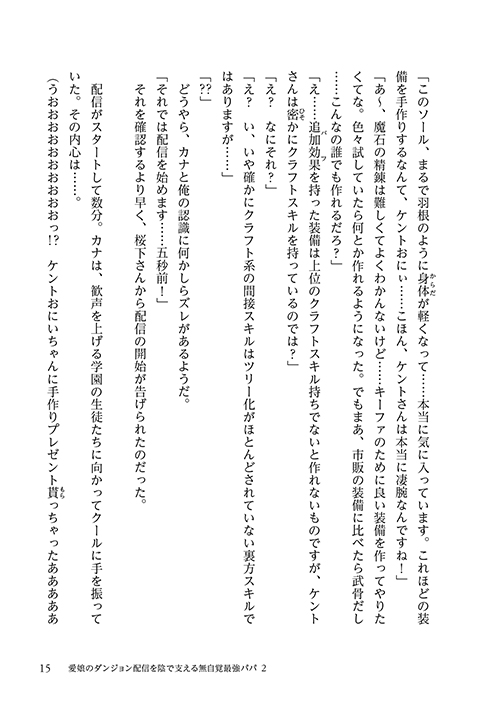 「このソール、まるで羽根のように身体が軽くなって……本当に気に入っています。これほどの装
備を手作りするなんて、ケントおにぃ……こほん、ケントさんは本当に凄腕なんですね！」
「あ～、魔石の精錬は難しくてよくわかんないけど……キーファのために良い装備を作ってやりた
くてな。色々試していたら何とか作れるようになった。でもまあ、市販の装備に比べたら武骨だし
……こんなの誰でも作れるだろ？」
「え……追加効果を持った装備は上位のクラフトスキル持ちでないと作れないものですが、ケント
さんは密かにクラフトスキルを持っているのでは？」
「え？　なにそれ？」
「え？　い、いや確かにクラフト系の間接スキルはツリー化がほとんどされていない裏方スキルで
はありますが……」
「??」
どうやら、カナと俺の認識に何かしらズレがあるようだ。
「それでは配信を始めます……五秒前！」
それを確認するより早く、桜下さんから配信の開始が告げられたのだった。
配信がスタートして数分。カナは、歓声を上げる学園の生徒たちに向かってクールに手を振って
いた。その内心は……。
（うおおおおおおおおおおっ!?　ケントおにいちゃんに手作りプレゼント貰っちゃったあああああ
15　愛娘のダンジョン配信を陰で支える無自覚最強パパ 2